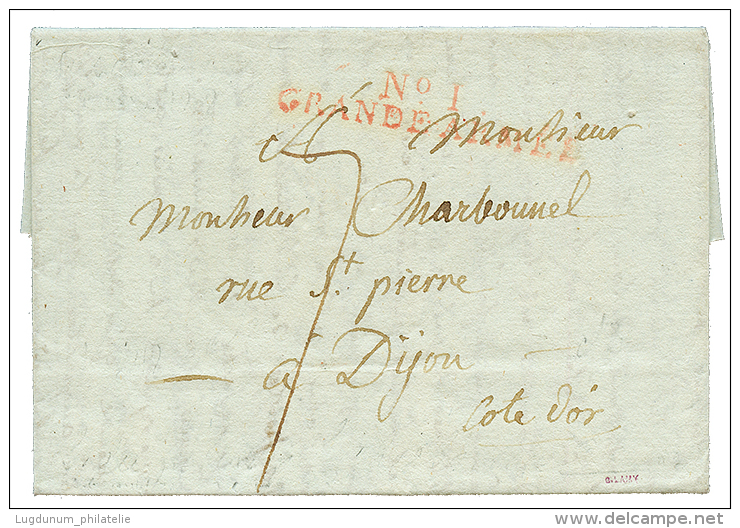 No 1
GRANDE-ARMÉE
A Monsieur
Monsieur Charbonnel
rue St pierre
à Dijon
Cote d'or
7
Lugdunum_philatelie
delcampe.net